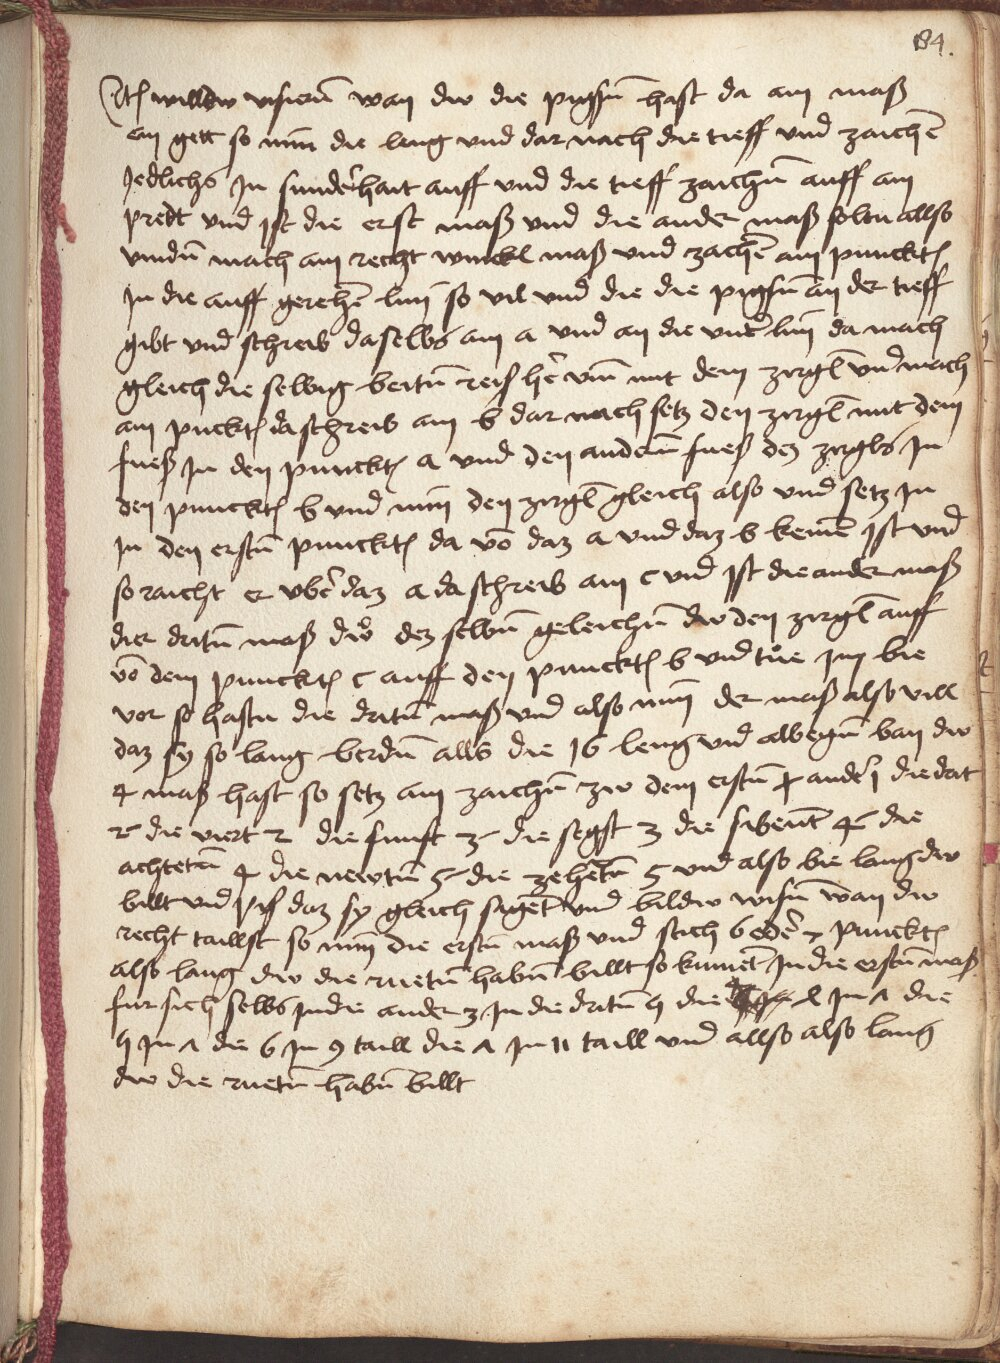 184.
Itẽ willdw visierñ wan dw die pigsñ hast da ain maß
ein gett so nim die leng vnd dar nach die tieff vnd zaichē
Jedlichs Jn sunderhait auff vnd die tieff zaichñ auff ain
predt vnd ist die erst maß vnd die ander maß soltu allso
vindñ mach ain recht winckl maß vnd zachē ain punckt
Jn die auff gerehē lini so vil vnd die die pigsñ an der tieff
gibt vnd schreib daselbs ain a vnd an die vnter lini da mach
gleich die selbig beitñ reis her vmb mit dem zirgl vnd mach
ain puckt da schreib ain b dar nach setz den zirgl mit dem
fueß Jn den punckt a vnd den anderñ fueß dez zirgls Jn
den punckt b vnd nim den zirgl gleich also vnd setz Jn
Jn den erstñ punckt da võ daz a vnd daz b kemē ist vnd
so raicht er vber daz a da schreib ain c vnd ist die ander maß
dier dritñ maß dw dez selbñ geleichñ dw den zirgl auff
võ dem punckt c auff den punckt b vnd tue Jm bie
vor so hastu die dritñ maß vnd also nim der maß also vill
daz sy so lang berdñ alls die 16 leng vnd albegñ ban dw
4 maß hast so setz ain zaichñ zw dem erstñ ander 1 die drit
2 die viert 2 die funft 3 die segst 3 die sibent 4 die
achtetñ 4 die newtñ 5 die zehetñ 5 vnd also bie lang dw
billt vnd sis daz sy gleich sigent vnd bildw wisñ wan dw
recht taillst so nim die erstñ maß vnd stich 6 oder 7 punckt
also lang dw die ruetñ habñ billt so kumet Jn die erstñ maß
fur sich selbs Jn die ander 3 Jn die dritñ 4 die Jn 7 die
4 Jn 7 die 6 Jn 9 taill die 7 Jn 11 taill vnd allso also lang
dw die ruetñ habñ billt